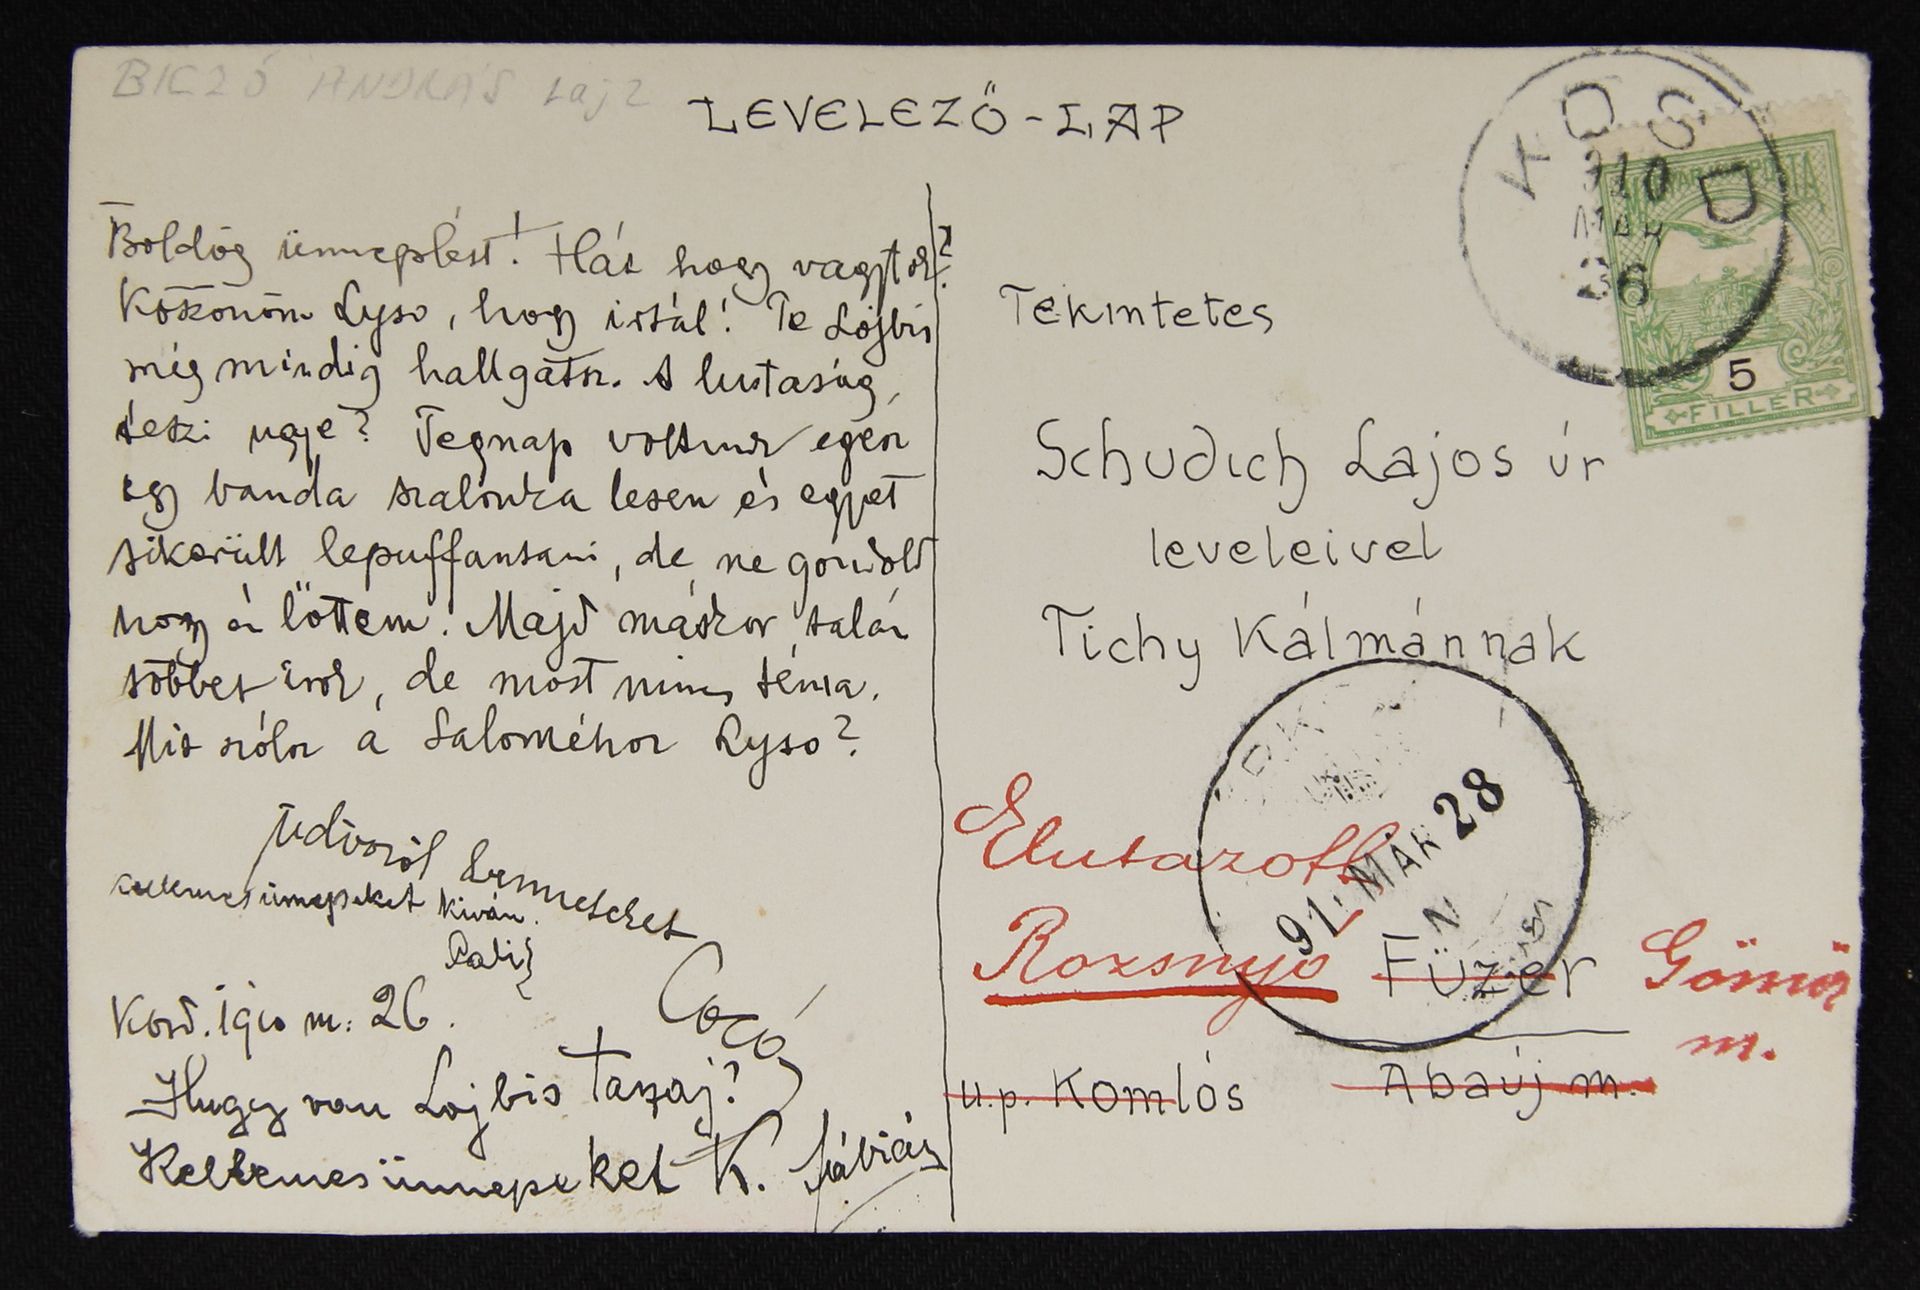 BICZÓ ANDRÁS rajz
LEVELEZŐ-LAP
Boldog ünneplést! Hát hogy vagytok?
Köszönöm Lyso, hogy irtál! Te Lojbis
még mindig hallgatsz. A lustaság
teszi ugye? Tegnap voltunk egén
egy banda szalonka lesen és egyet
sikerült lepuffantani, de ne gondold
hogy én lőttem. Majd máskor talán
többet írok, de most nincs téma.
Mit szólsz a Saloméhoz Lyso?
Üdvözöl benneteket
kellemes ünnepeket kiván
Pali
Cocó
Kosd. 1910 m. 26.
Hugy van Lojbis
Kellemes ünnepeket K. Fábián
KOSD
910 MÁR 26
MAGYAR KIR. POSTA
5
FILLÉR
Tekintetes
Schudich Lajos úr
leveleivel
Tichy Kálmánnak
Elutazott
91. MÁR 28
Rozsnyó Füzér Gömör
m.
u.p. Komlós Abaúj m.